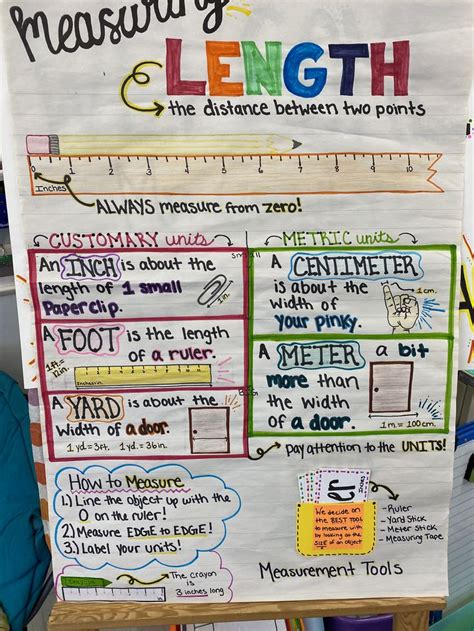 Measuring
LENGTH
the distance between two points
0 1 2 3 4 5 6 7 8 9 10
Inches
ALWAYS measure from zero!
CUSTOMARY units
small
METRIC units
An INCH is about the
length of 1 small
Paperclip.
1 in.
A CENTIMETER
is about the
width of
your pinky.
1 cm.
A FOOT is the length
of a ruler.
1 ft =
12 in.
A METER a bit
more than
the width
of a door.
1 m = 100 cm.
BIG
A YARD is about the
width of a door.
1 yd = 3 ft. 1 yd = 36 in.
pay attention to the UNITS!
How to Measure
1.) Line the object up with the
0 on the ruler!
2.) Measure EDGE to EDGE!
3.) Label your units!
Inches
er
We decide on
the BEST TOOL
to measure with
by looking at the
SIZE of an object
- Ruler
- Yard Stick
- Meter Stick
- Measuring Tape
The crayon
is
3 inches long
Measurement Tools